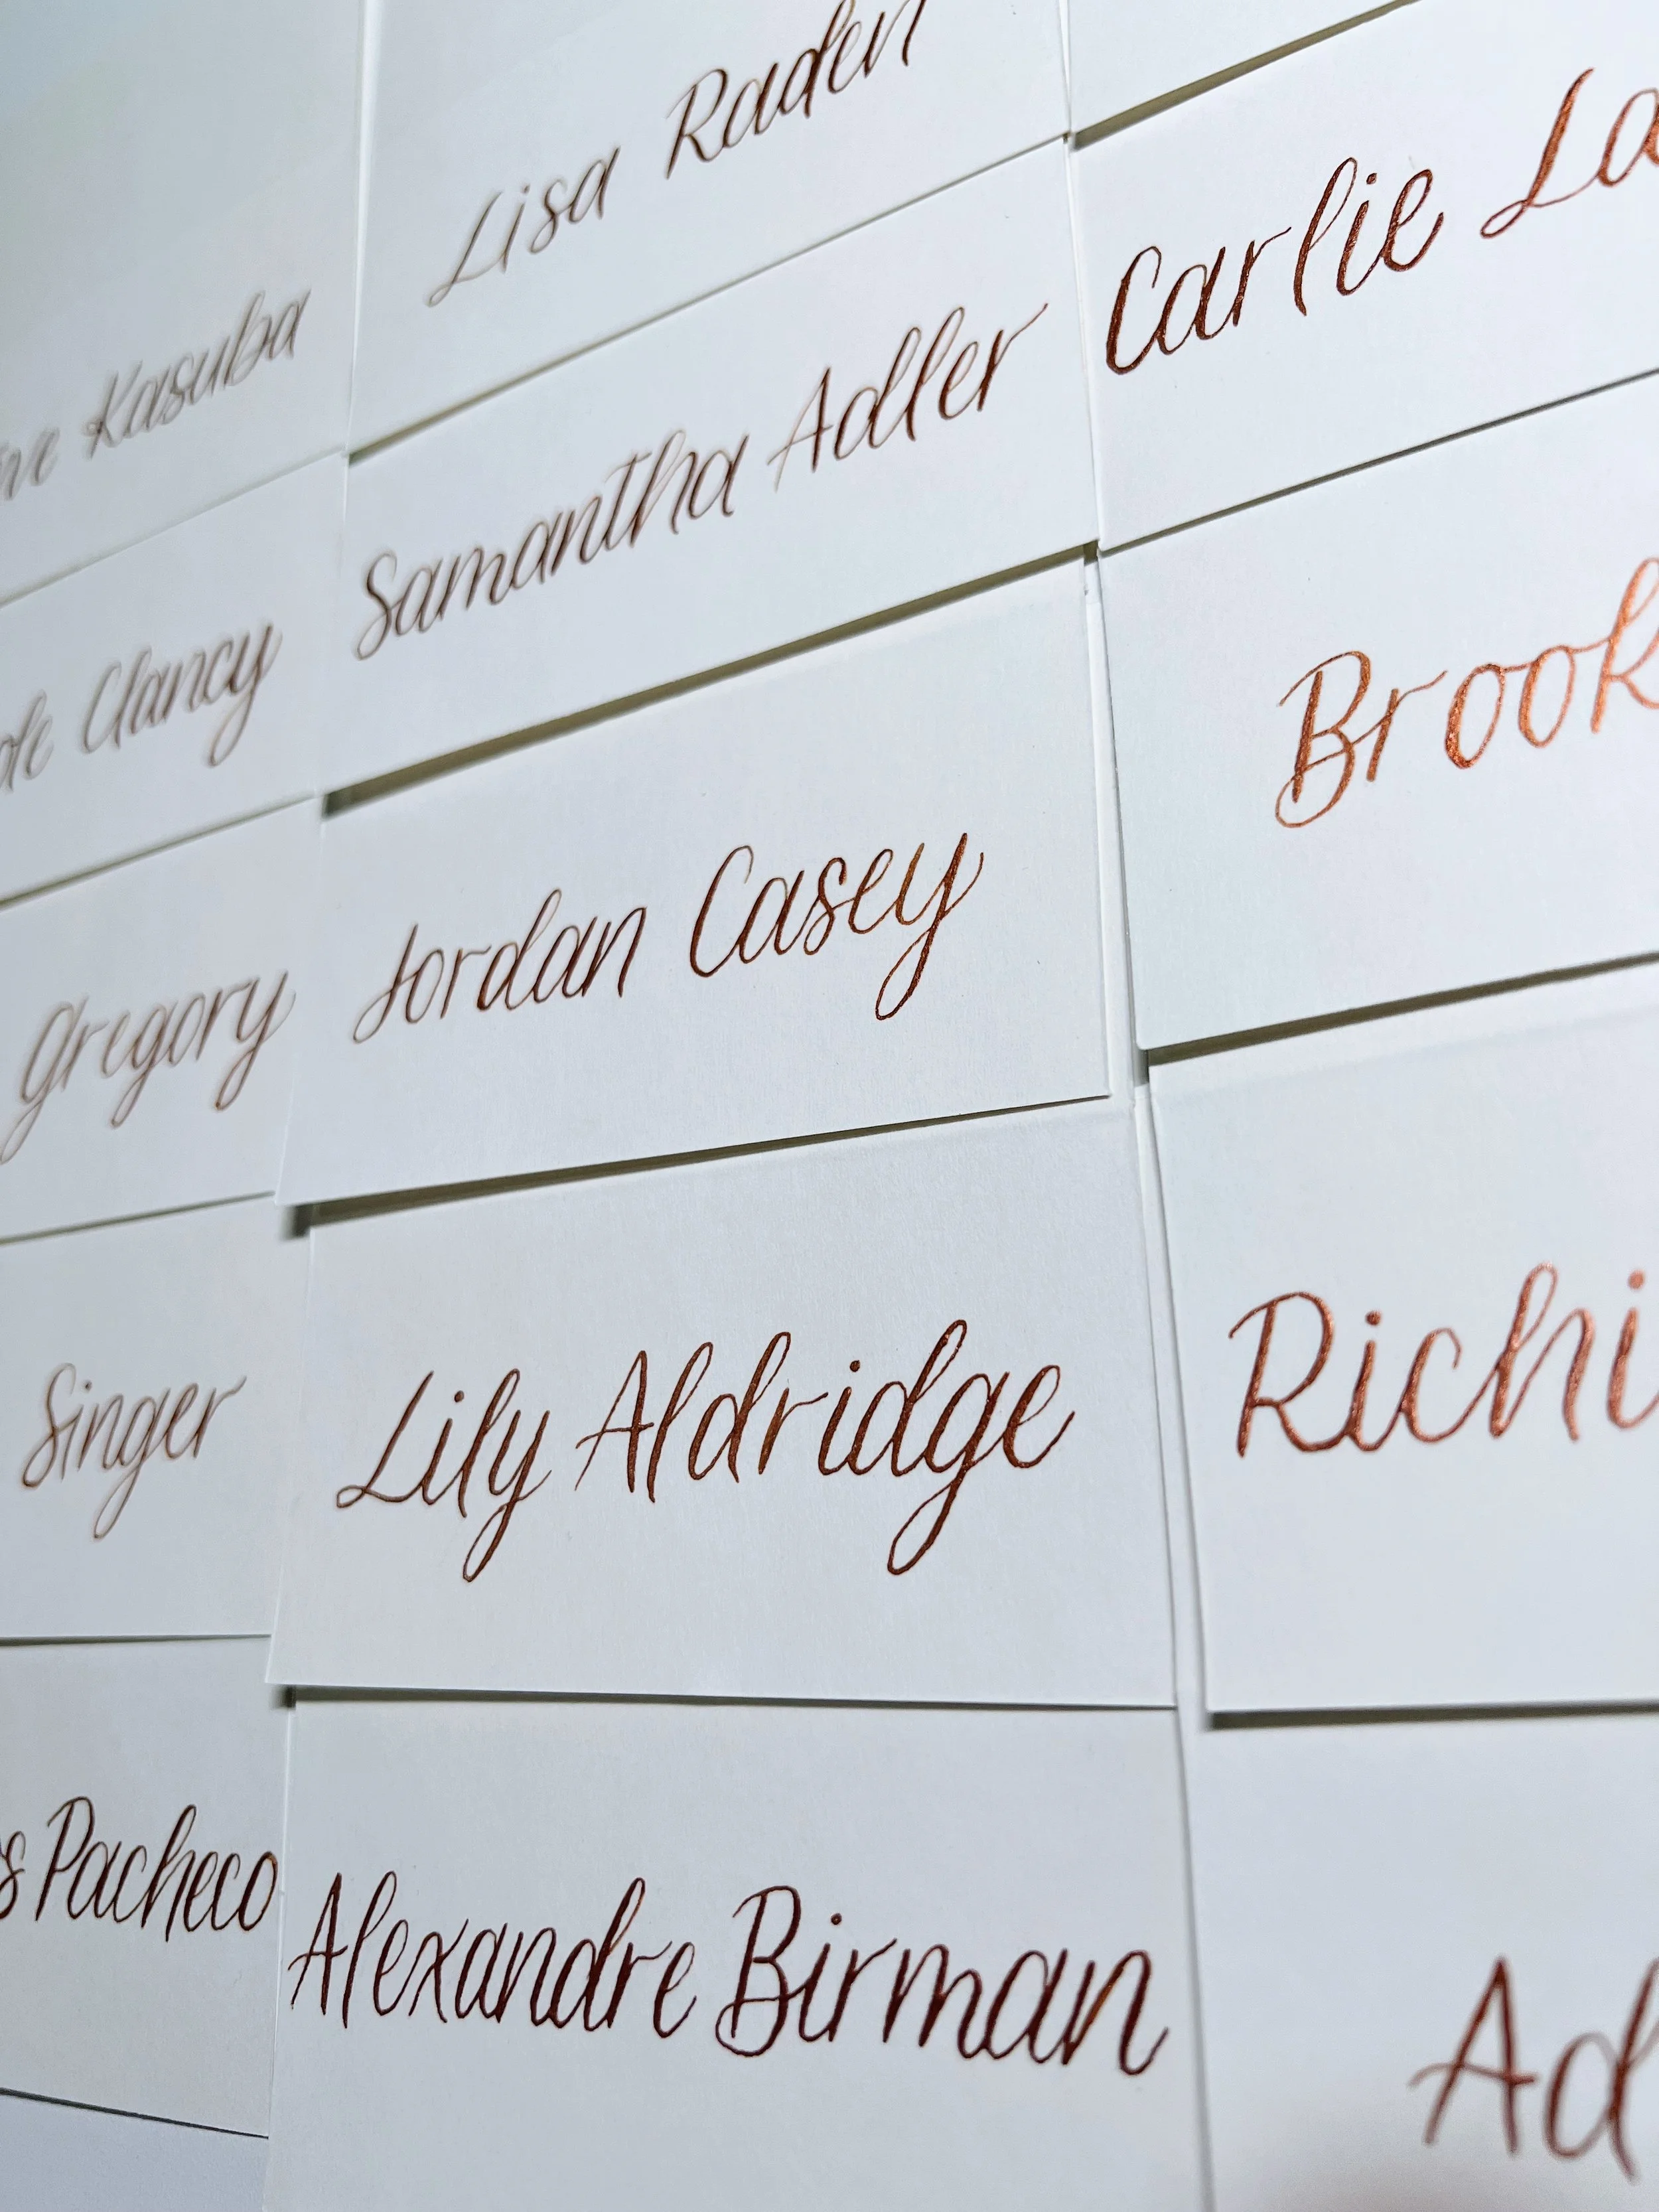 Kasuba
Clancy
Gregory
Singer
Pacheco
Lisa Raden
Samantha Adler
Jordan Casey
Lily Aldridge
Alexandre Birman
Carlie La
Brook
Richi
Ad